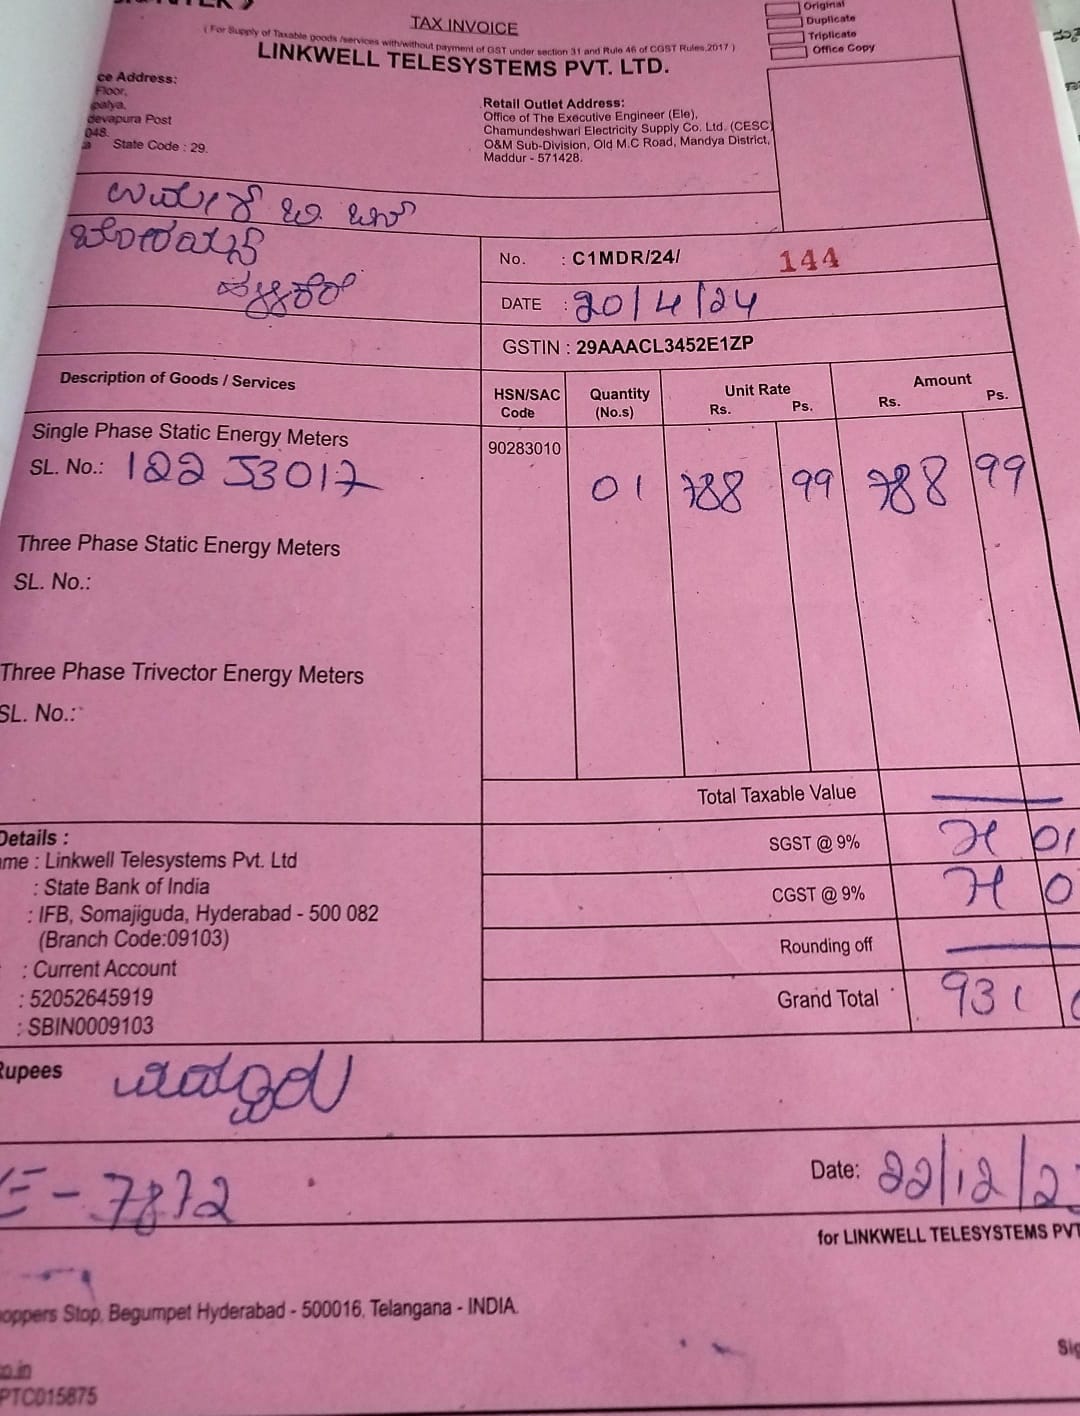 TAX INVOICE
( For Supply of Taxable goods /services with/without payment of GST under section 31 and Rule 46 of CGST Rules,2017 )
LINKWELL TELESYSTEMS PVT. LTD.
Original
Duplicate
Triplicate
Office Copy
ce Address:
Floor,
palya,
devapura Post
048.
a State Code : 29.
Retail Outlet Address:
Office of The Executive Engineer (Ele),
Chamundeshwari Electricity Supply Co. Ltd. (CESC)
O&M Sub-Division, Old M.C Road, Mandya District,
Maddur - 571428.
No. : C1MDR/24/ 144
DATE : 20/4/24
GSTIN : 29AAACL3452E1ZP
Description of Goods / Services
HSN/SAC Code
Quantity (No.s)
Unit Rate Rs. Ps.
Amount Rs. Ps.
Single Phase Static Energy Meters
SL. No.: 122 53017
90283010 01 788 99 788 99
Three Phase Static Energy Meters
SL. No.:
Three Phase Trivector Energy Meters
SL. No.:
Total Taxable Value
SGST @ 9% 71 01
CGST @ 9% 71 0
Rounding off
Grand Total 931
Details :
me : Linkwell Telesystems Pvt. Ltd
: State Bank of India
: IFB, Somajiguda, Hyderabad - 500 082
(Branch Code:09103)
: Current Account
: 52052645919
: SBIN0009103
Rupees
E - 7872
Date: 22/12/2
for LINKWELL TELESYSTEMS PVT
oppers Stop, Begumpet Hyderabad - 500016, Telangana - INDIA.
Sig
o.in
PTC015875